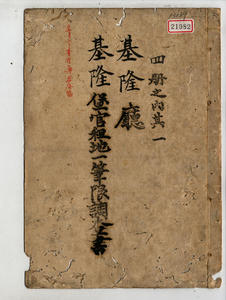 21982
四冊之内其一
基隆廳
基隆堡官租地一筆限調査書